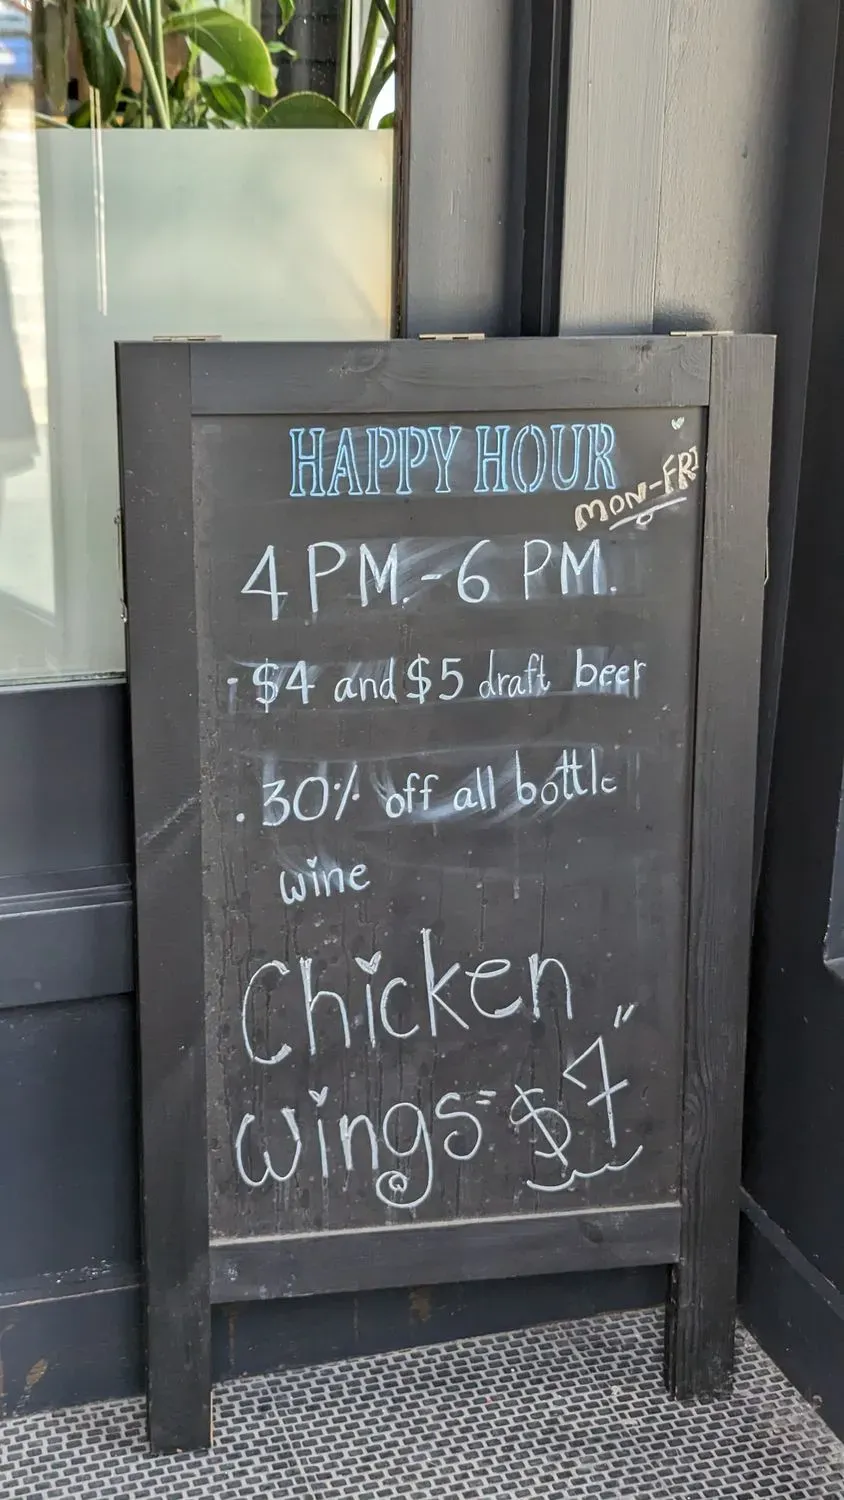 HAPPY HOUR
MON-FRI
4 PM.-6 PM.
· $4 and $5 draft beer
· 30% off all bottle
wine
Chicken
wings = $7"